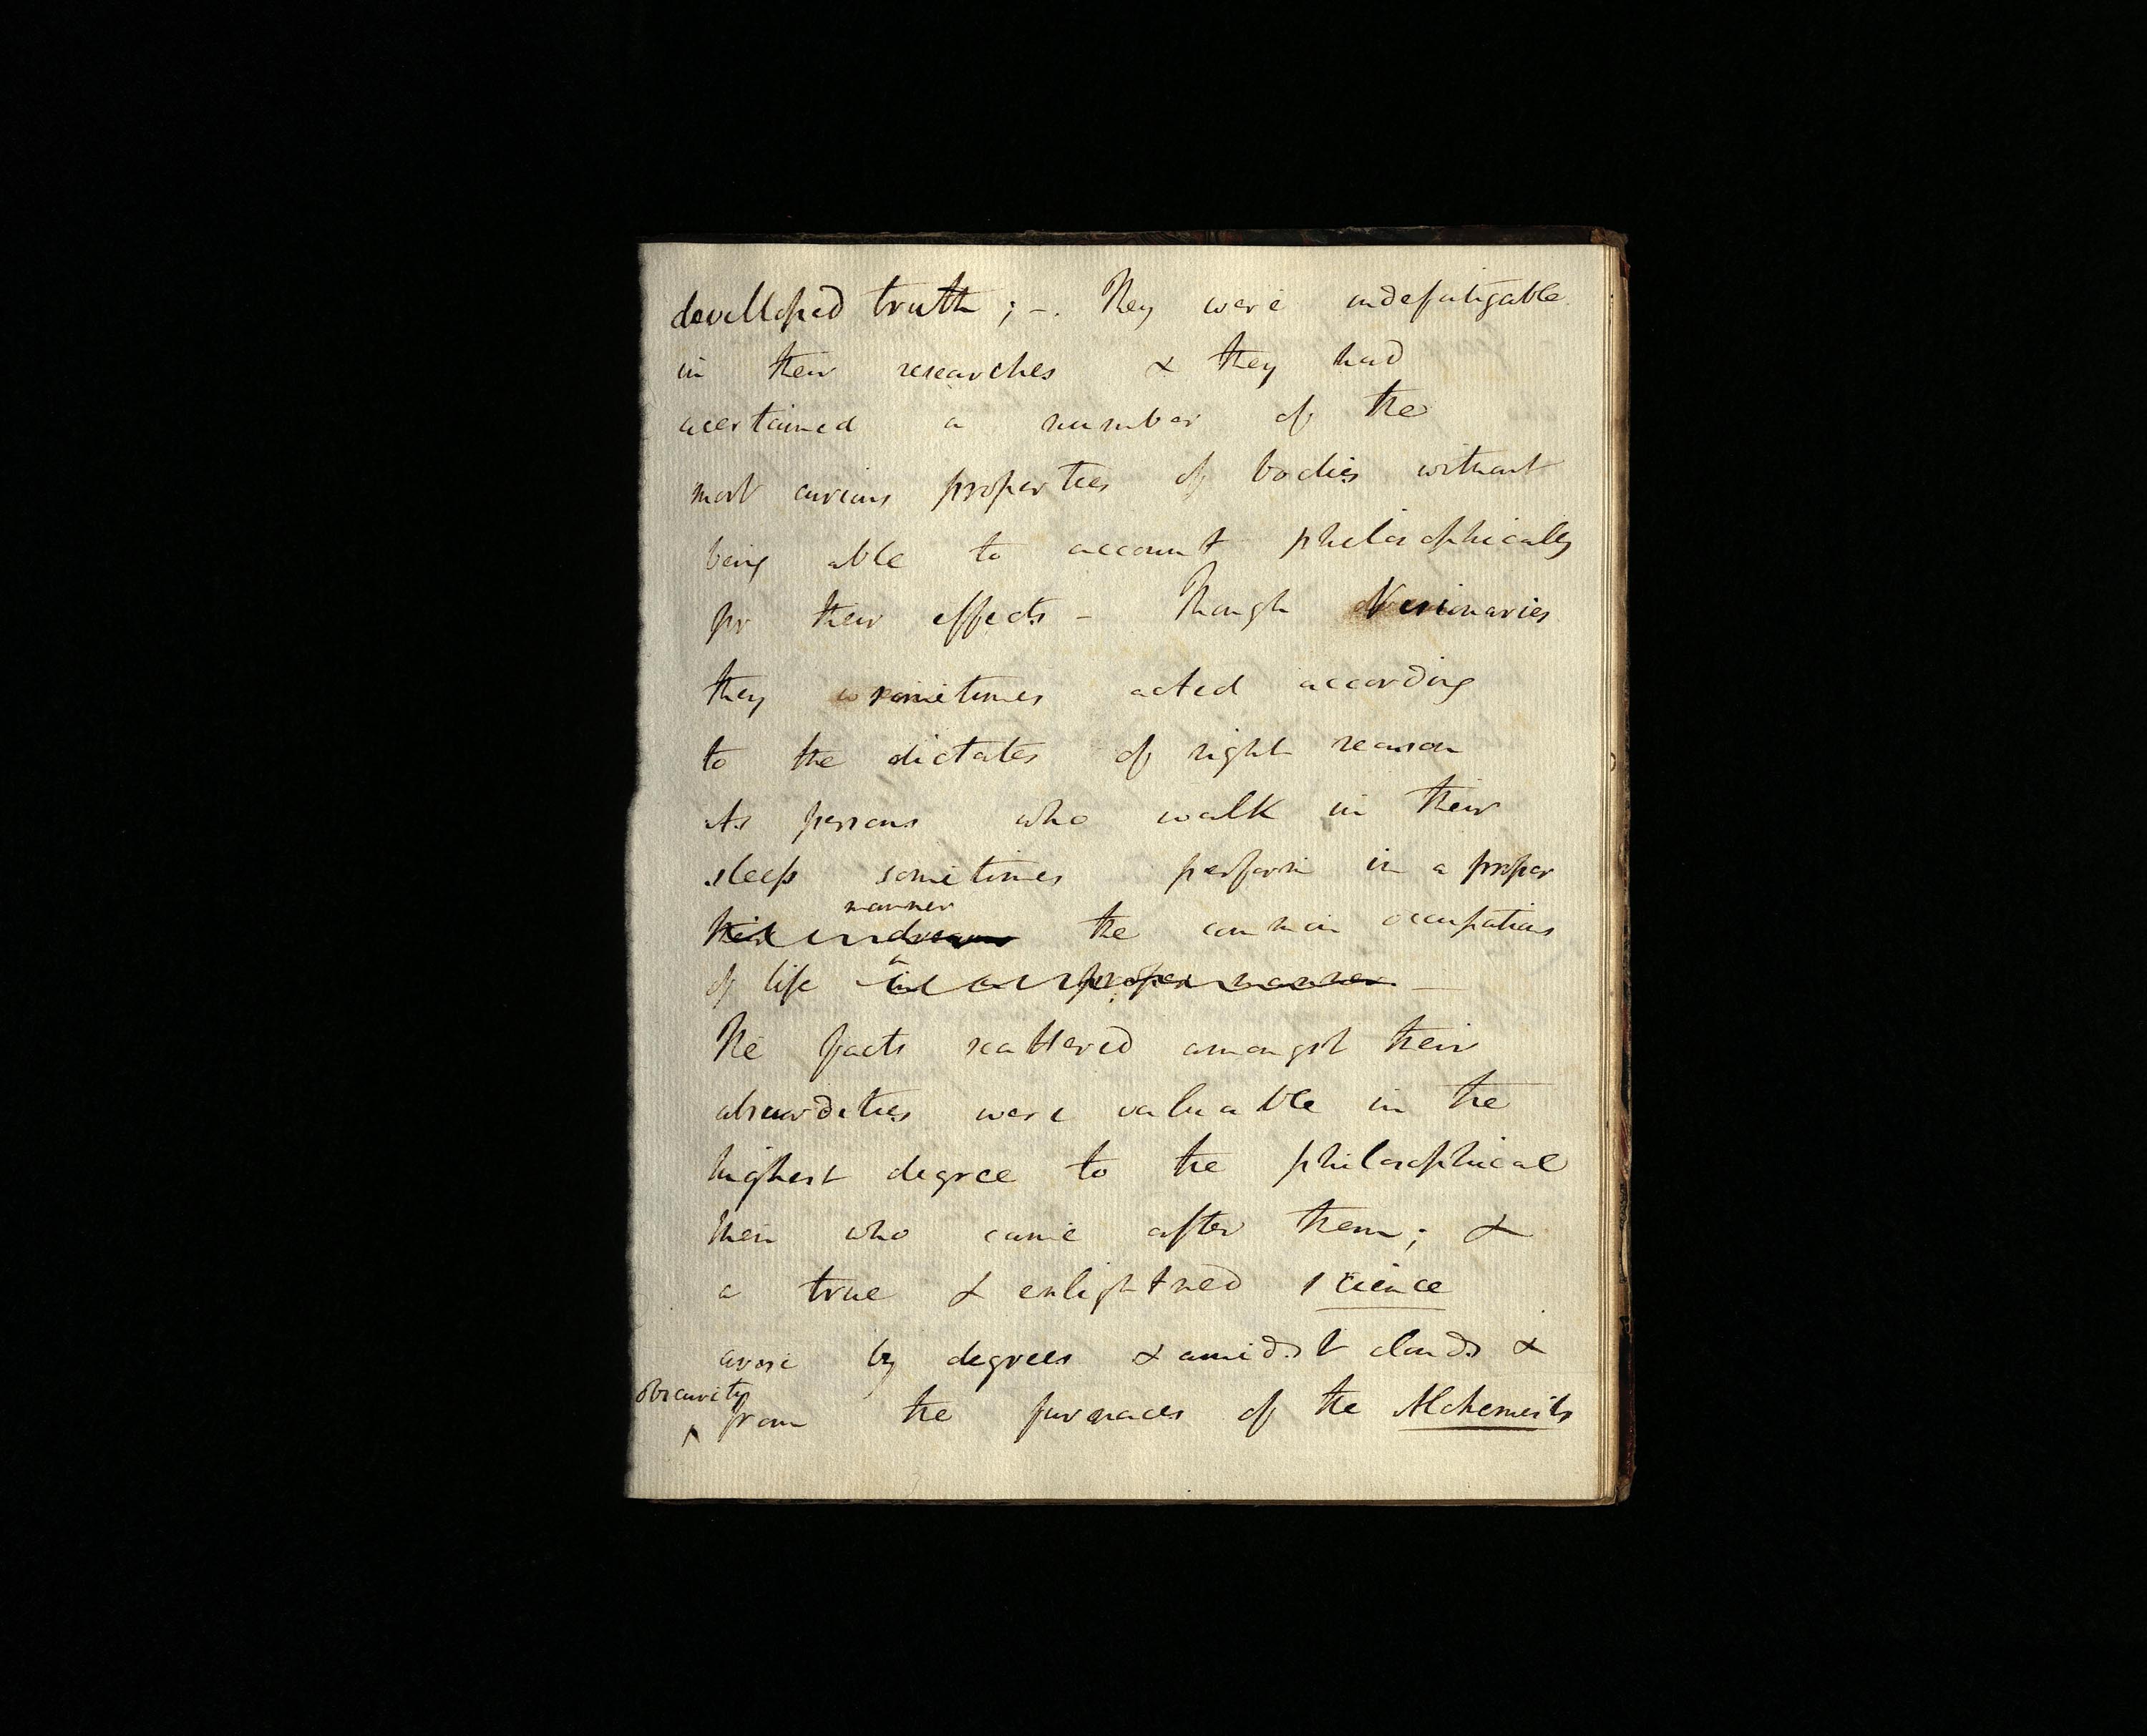 developed truth; -. They were indefatigable
in their researches & they had
acertained a number of the
most curious properties of bodies without
being able to account philosophically
for their effects - Though Visionaries
they sometimes acted according
to the dictates of right reason
As persons who walk in their
sleep sometimes perform in a proper
manner
their in dreams the common occupations
of life in a proper manner —
The facts scattered amongst their
absurdities were valuable in the
highest degree to the philosophical
men who came after them; &
a true & enlightned science
arose by degrees & amidst clouds &
obscurity
from the furnaces of the Alchemists